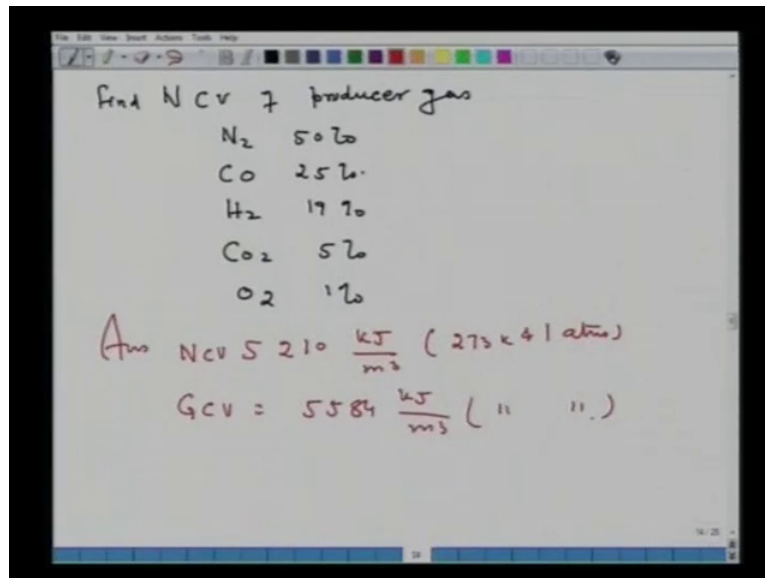 File Edit View Insert Actions Tools Help
Find NCV of producer gas
N2 50%
CO 25%.
H2 19%
CO2 5%
O2 1%
Ans NCV 5210 kJ/m3 (273K & 1 atm)
GCV = 5584 kJ/m3 ( " ". )